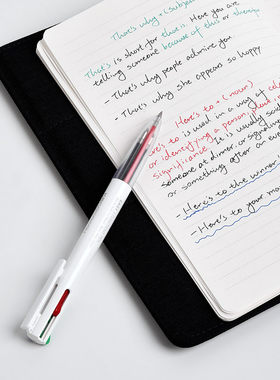 That's why + (subje
That's is short for that is. Here you are
telling someone because of this or therefo
- That's why people admire you
- That's why she appears so happy.
Here's to + (noun)
re's to is used in a way of
or identifying a person, place
significance. It is usually said
someone at dinner, or
or something after an
- Here's to the winner
- Here's to your